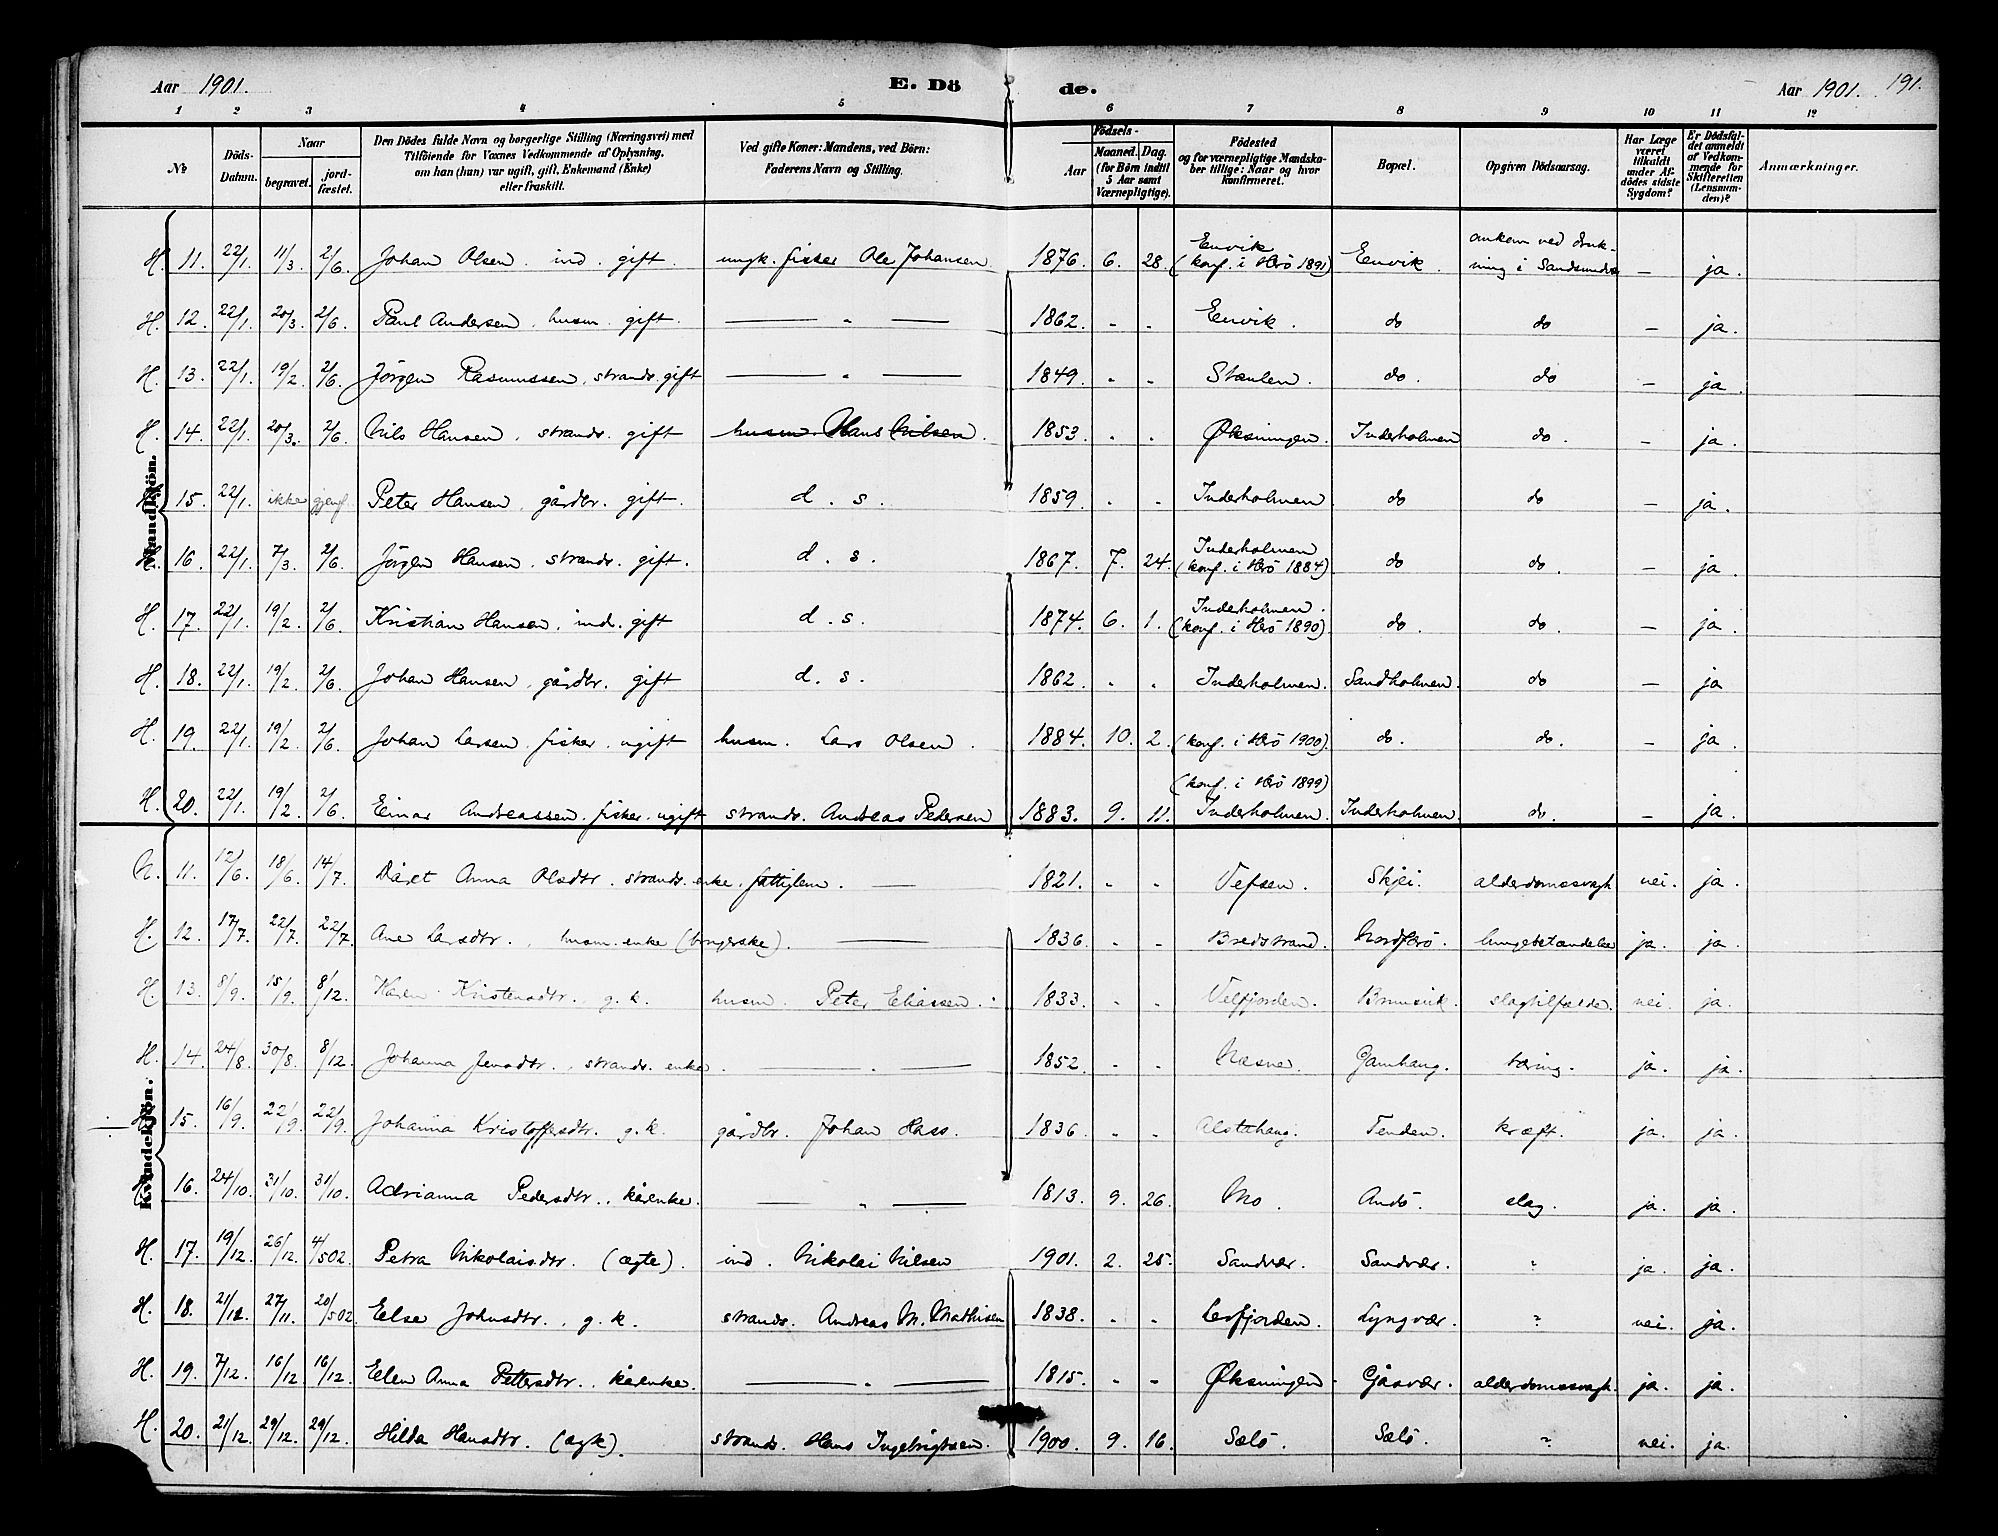 Aar 1901. E. Dö de. Aar 1901. 191.
1 2 3 4 5 6 7 8 9 10 11 12
№ Döds-Datum. Naar begravet. jord-fæstet. Den Dödes fulde Navn og borgerlige Stilling (Næringsvei) med Tilföiende for Voxnes Vedkommende af Oplysning, om han (hun) var ugift, gift, Enkemand (Enke) eller fraskilt. Ved gifte Koner: Mandens, ved Börn: Faderens Navn og Stilling. Födsels- Aar Maaned. Dag. (for Börn indtil 5 Aar samt Værnepligtige). Födested og for værnepligtige Mandskaber tillige: Naar og hvor konfirmeret. Bopæl. Opgiven Dödsaarsag. Har Læge været tilkaldt under Afdödes sidste Sygdom? Er Dödsfaldet anmeldt af Vedkommende for Skifteretten (Lensmanden)? Anmærkninger.
Mandkjön.
H. 11. 22/1. 11/3. 2/6. Johan Olsen. ind. gift. ungk. fisker Ole Johansen 1876. 6. 28. Envik (konf. i Herö 1891) Envik. omkom ved drukning i Sandsundvær – ja.
H. 12. 22/1. 20/3. 2/6. Paul Andersen. husm. gift. — " — 1862. " " Envik. do do – ja.
H. 13. 22/1. 19/2. 2/6. Jörgen Rasmussen. strands. gift — " — 1849. " " Staulen. do. do – ja.
H. 14. 22/1. 20/3. 2/6. Nils Hansen. strands. gift husm. Hans Nilsen. 1853. " " Øksningen. Inderholmen do. – ja.
H. 15. 22/1. ikke gjenf. Peter Hansen, gårdbr. gift. d. s. 1859. " " Inderholmen do do – ja.
H. 16. 22/1. 7/3. 2/6. Jörgen Hansen. strands. gift. d. s. 1867. 7. 24. Inderholmen (konf. i Herö 1884) do do. – ja.
H. 17. 22/1. 19/2. 2/6. Kristian Hansen. ind. gift d. s. 1874. 6. 1. Inderholmen. (konf. i Herö 1890) do. do. – ja.
H. 18. 22/1. 19/2. 2/6. Johan Hansen. gårdbr. gift d. s. 1862. " " Inderholmen. Sandholmen. do – ja
H. 19. 22/1. 19/2. 2/6. Johan Larsen. fisker. ugift husm. Lars Olsen. 1884. 10. 2. (konf. i Herö 1900) do. do. – ja.
H. 20. 22/1. 19/2. 2/6. Einar Andreassen. fisker. ugift strands. Andreas Pedersen 1883. 9. 11. (konf. i Herö 1899) Inderholmen. Inderholmen. do. – ja.
Kvindekjön.
N. 11. 12/6. 18/6. 14/7. Dåret Anna Olsdtr. strands. enke. fattiglem. — 1821. " " Vefsen. Skjei. alderdomssvagh. nei. ja.
H. 12. 17/7. 22/7. 22/7. Ane Larsdtr., husm. enke — 1836. " " Bredstrand. Nordherö. lungebetændelse ja. ja.
H 13. 8/9. 15/9. 8/12. Karen Kristensdtr., g. k. husm. Peter Eliassen. 1833. " " Velfjorden. slagtilfælde. nei. ja.
H. 14. 24/8. 30/8. 8/12. Johanna Jensdtr., strands. enke. — " — 1852. " " Næsne. Gamhaug. tæring. ja. ja.
15. 16/9. 22/9. 22/9. Johanna Kristoffersdtr. g. k. gårdbr. Johan Hass. 1836. " " Alstahaug. Tenden. kræft. ja. ja.
16. 24/10. 31/10. 31/10. Adrianna Pedersdtr., kårenke. — " — 1813. 9. 26. Mo. Andö. slag. ja. ja.
H. 17. 19/12. 26/12. 4/5 02. Petra Nikolaisdtr. (ægte). ind. Nikolai Nilsen 1901. 2. 25. Sandvær. Sandvær. ? ja. ja.
H. 18. 27/11. 20/5 02. Else Johnsdtr., g. k. strands. Andreas M. Mathisen 1838. " " Leirfjorden. Lyngvær. ? nei. ja.
H. 19. 7/12. 16/12. 16/12. Elen Anna Pettersdtr., kårenke. — " — 1815. " " Øksningen Gåsvær. alderdomssvagh. ja. ja.
H. 20. 21/12. 29/12. 29/12. Hilda Hansdtr. (ægte). strands. Hans Ingebrigtsen. 1900. 9. 16. Sælö. Sælö. ? nei. ja.